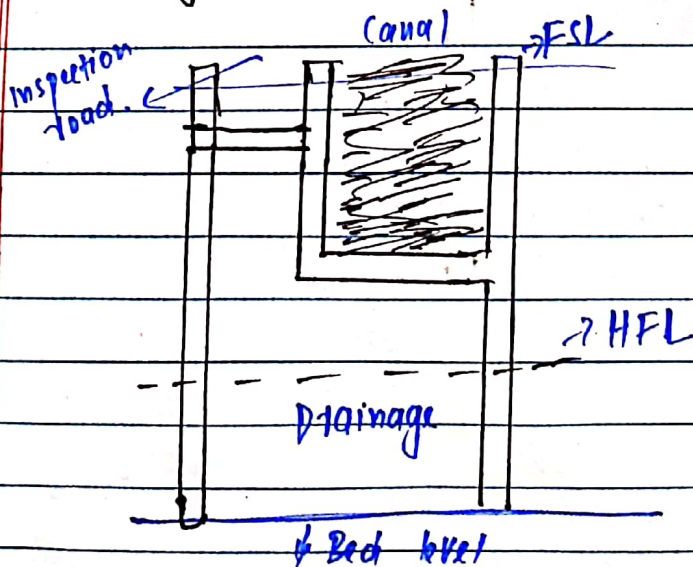 Canal
FSL
Inspection
road.
HFL
Drainage
Bed level